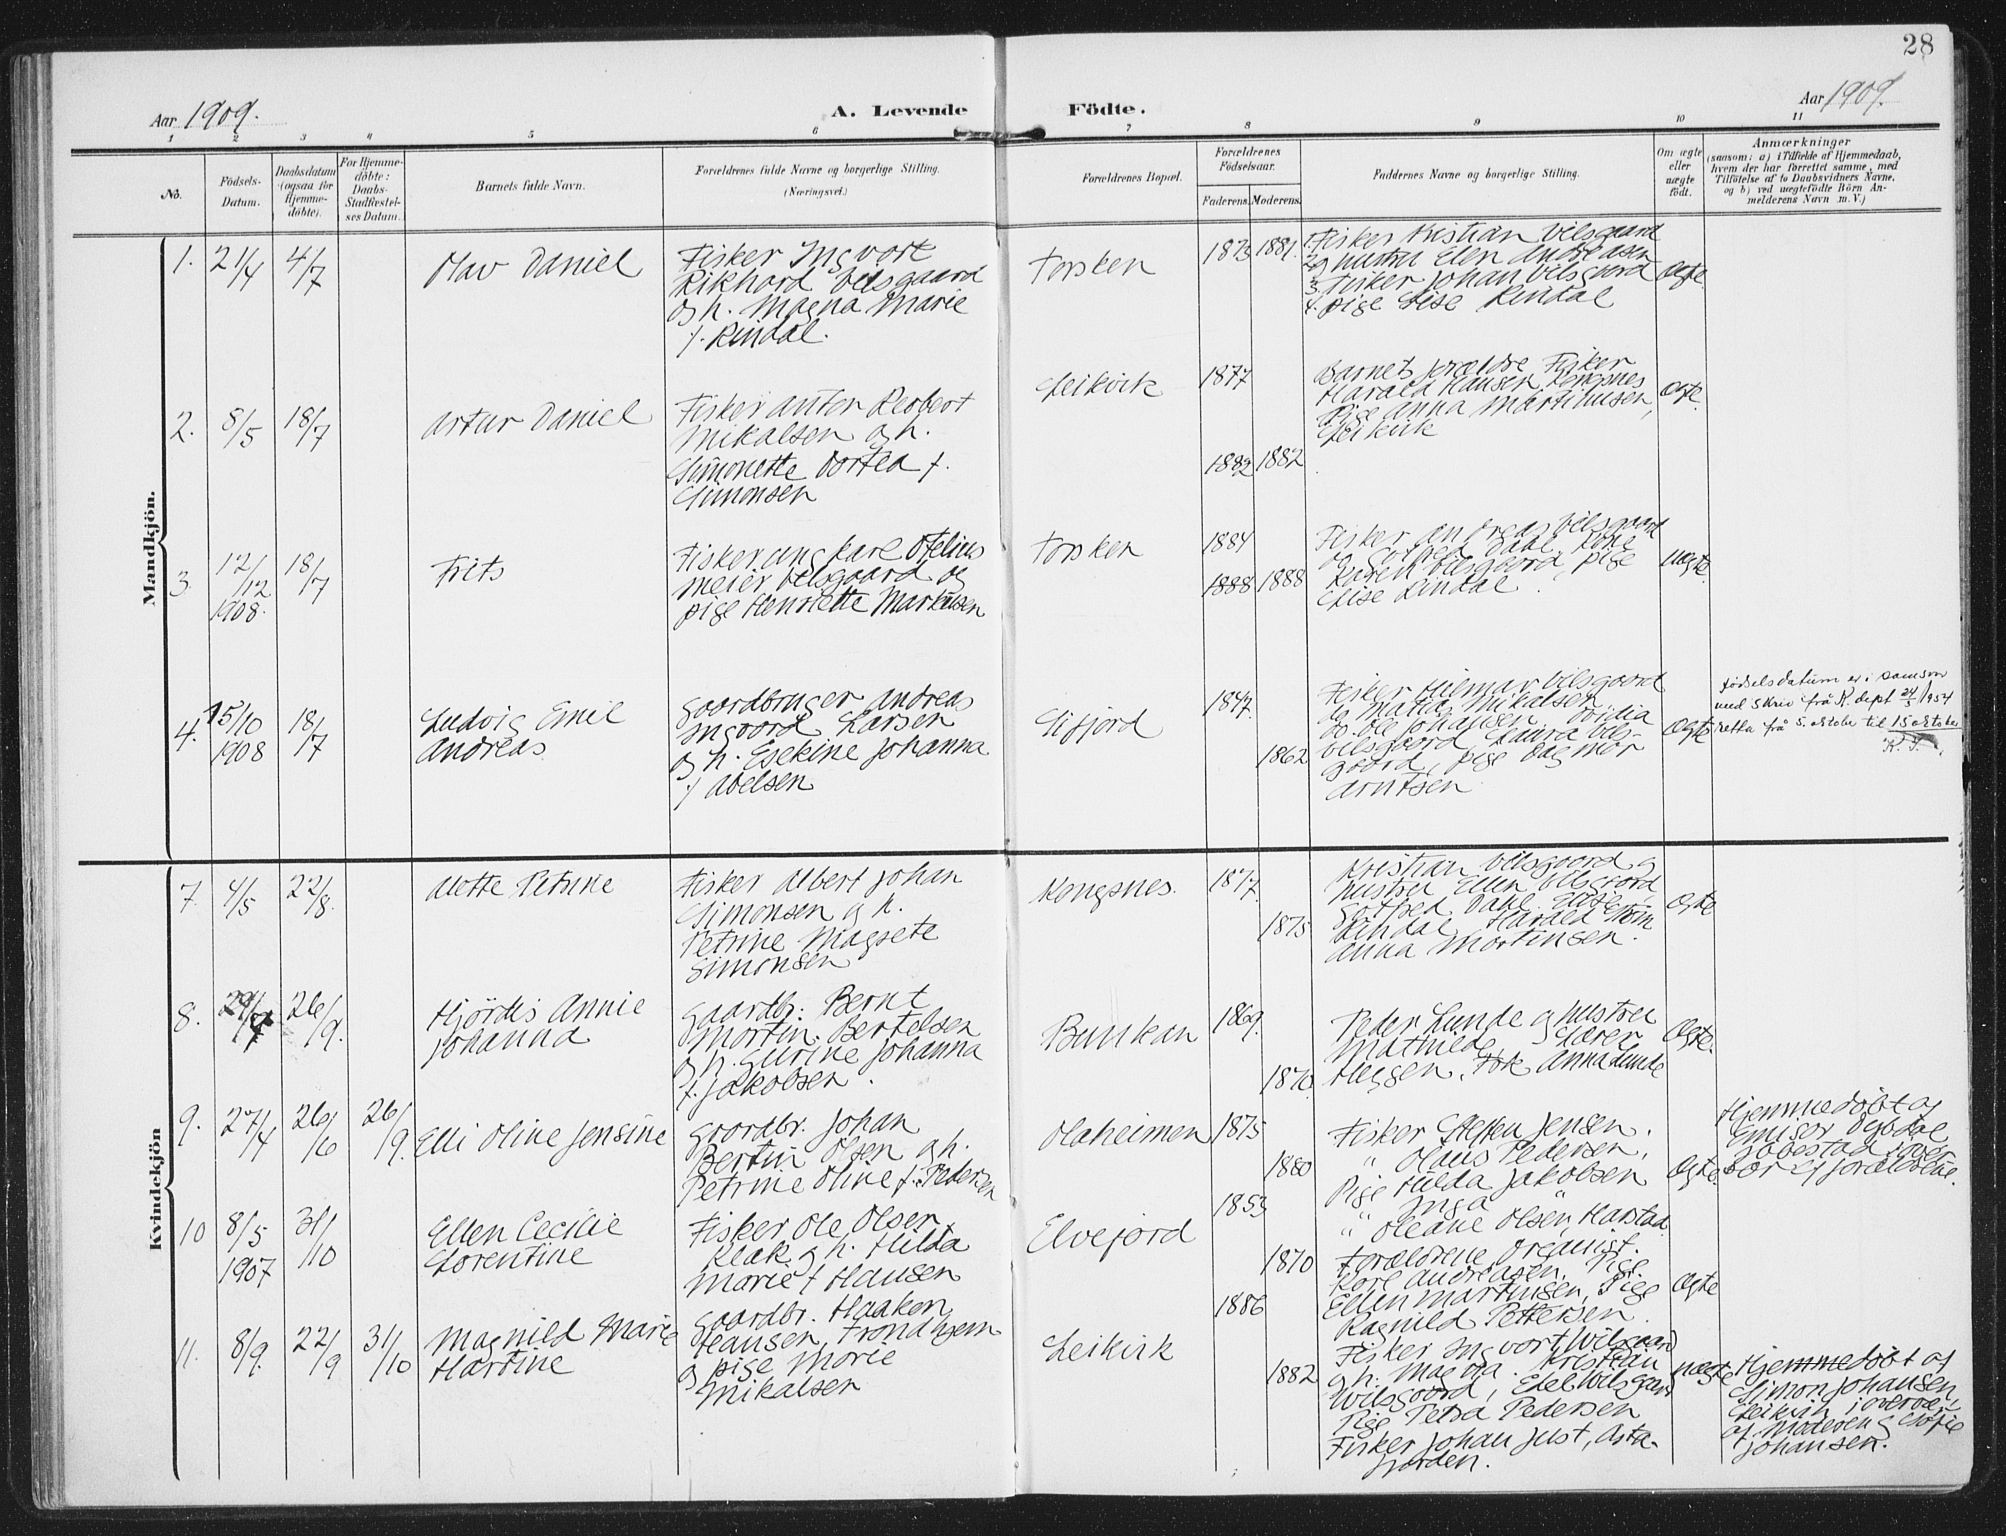 28
Aar 1909.
A. Levende
Födte.
Aar 1909.
1 2 3 4 5 6 7 8 9 10 11
No.
Födsels-
Datum.
Daabsdatum
(ogsaa for
Hjemme-
döbte).
For Hjemme-
döbte:
Daabs-
Stadfæstel-
ses Datum.
Barnets fulde Navn.
Forældrenes fulde Navne og borgerlige Stilling.
(Næringsvei.)
Forældrenes Bopæl.
Forældrenes
Födselsaar.
Faderens.
Moderens.
Faddernes Navne og borgerlige Stilling.
Om ægte
eller
uægte
födt.
Anmærkninger
(saasom: a) i Tilfælde af Hjemmedaab,
hvem der har forrettet samme, med
Tilföielse af to Daabsvidners Navne,
og b) ved uægtefödte Börn An-
melderens Navn m. V.)
Mandkjön.
1.
21/4
4/7
Olav Daniel
Fisker Ingvort
Rikhard Vilsgaard
og h. Magna Marie
f. Rindal.
Torsken
1873
1881.
1. Fisker Kristian Vilsgaard
2. og hustru Elen Andreasen
3. Fisker Johan Vilsgaard
4. Pige Lise Rindal
Ægte.
2.
8/5
18/7
Artur Daniel
Fisker Anton Robert
Mikalsen og h.
Simonette Dortea f.
Simonsen
Leikvik
1877
1882
1882
Barnets forældre Fisker
Harald Hansen Kongsnes
Pige Anna Martinusen,
Leikvik
Ægte.
3.
12/12
1908.
18/7
Frits
Fisker ung karl Ofelius
Meier Vilsgaard og
pige Henriette Markusen
Torsken
1884
1888
1888
Fisker Andreas Vilsgaard
og Gotfred Dahl, Kone
Karen Vilsgaard, pige
Elise Rindal.
uægte.
4.
15/10
1908
18/7
Ludvig Emil
Andreas
Gaardbruger Andreas
Ingvord Larsen
og h. Esekine Johanna
f. Abelsen
Gifjord
1847.
1862
Fisker Hilmar Vilsgaard
og Matias Mikalsen,
do. Ole Johansen,
Vilsgaard, Laura Vils-
gaard, pige Dagmar
Arntsen
Ægte
Födselsdatum er i samsvar
med skriv frå K. dept 24/5 1954
retta frå 5. oktober til 15 oktober
K. S.
Kvindekjön
7.
4/5
22/8.
Alette Petrine
Fisker Albert Johan
Simonsen og h.
Petrine Magrete
Simonsen
Kongsnes.
1877.
1875
Kristian Vilsgaard og
hustru Ellen Vilsgaard
Gotfred Dahl. Elise
Rindal. Harald Strøm
Anna Martinsen.
Ægte
8.
26/9.
Hjördis Annie
Johanna
Gaardbr. Bernt
Mortin Bertelsen
og h. Gurine Johanna
f. Jakobsen.
Bunkan
1869.
1870
Peder Lunde og hustru
Mathilde, Lærer
Heggen, Frk Anna Lunde
Ægte.
9.
27/4
26/6
26/9.
Elli Oline Jensine
Gaardbr. Johan
Bertin Olsen og h.
Petrine Oline f. Pedersen
Olaheimen
1875
1880
Fisker Steffen Jensen.
" Olaus Pedersen,
Pige Hilda Jakobsen
" Inga "
" Oleane Olsen, Harstad
Ægte.
Hjemmedöbt af
Emisær Dybdal
Jøbestad i over-
vær af forældrene.
10
8/5
1907
31/10
Ellen Cecilie
Lorentine
Fisker Ole Olsen
Klak og h. Hilda
Marie f. Hansen
Elvejord
1853
1870
Forældrene. Organist.
Karl Andreasen, Pige
Ellen Martinsen, Pige
Ragnild Pettersen.
Ægte
11.
8/9.
22/9
31/10
Magnild Marie
Hartine
Gaardbr. Haakon
Hansen, Trondhjem
og pige Marie
Mikalsen
Leikvik
1886
1882
Fisker Ingvort Wilsgaard
og h. Magda. Kristian
Wilsgaard, Edel Wilsgaard
Pige Petra Pedersen
Fisker Johan Just, Asta-
fjorden.
uægte
Hjemmedöbt af
Simon Johansen,
Leikvik i overvær
af Moderen og Sofie
Johansen.